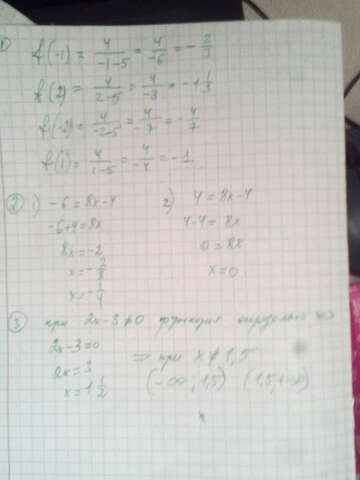 1
f(-1) = 4/(-1-5) = 4/-6 = -2/3
f(2) = 4/(2-5) = 4/-3 = -1 1/3
f(-2) = 4/(-2-5) = 4/-7 = -4/7
f(1) = 4/(1-5) = 4/-4 = -1
2 1) -6 = 8x-4
-6+4 = 8x
8x = -2
x = -2/8
x = -1/4
2) 4 = 8x-4
4-4 = 8x
0 = 8x
x = 0
3 при 2x-3≠0 функция
2x-3=0
2x = 3
x = 1 1/2
⇒ при x ≠ 1,5
(-∞; 1,5) (1,5; +∞)